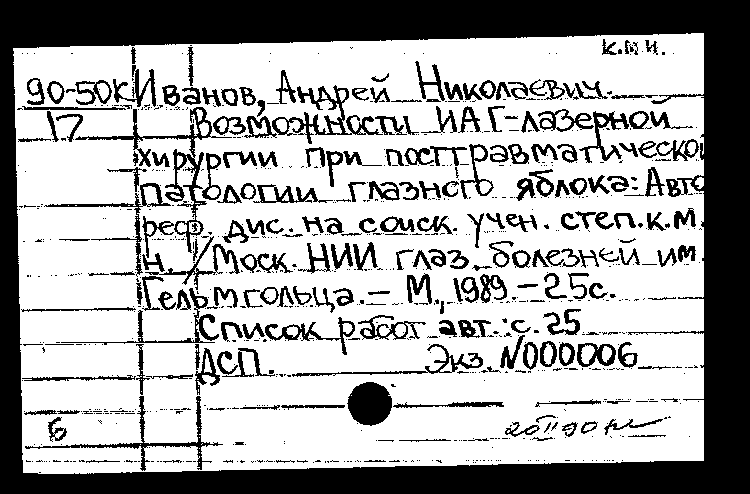 к.м.н.
90-50к Иванов, Андрей Николаевич.
17 Возможности ИАГ-лазерной
хирургии при посттравматической
патологии глазного яблока: Авто
реф. дис. на соиск. учен. степ. к.м.
н. / Моск. НИИ глаз. болезней им.
Гельмгольца. — М., 1989. — 25с.
Список работ авт.: с. 25
ДСП. Экз. N000006
б